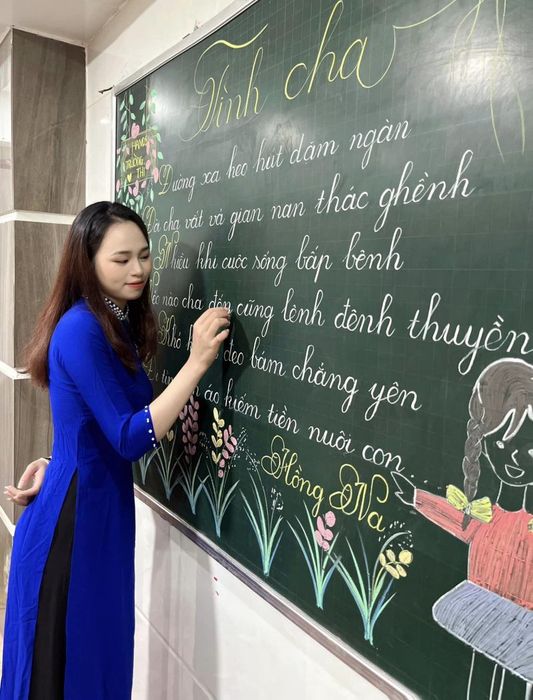 Tình cha
TRƯỜNG
THI
Đường xa heo hút dặm ngàn
cha vất vả gian nan thác ghềnh
Nhiều khi cuộc sống bấp bênh
nào cha đến cũng lênh đênh thuyền
Khó đeo bám chẳng yên
áo kiếm tiền nuôi con
Hồng Na